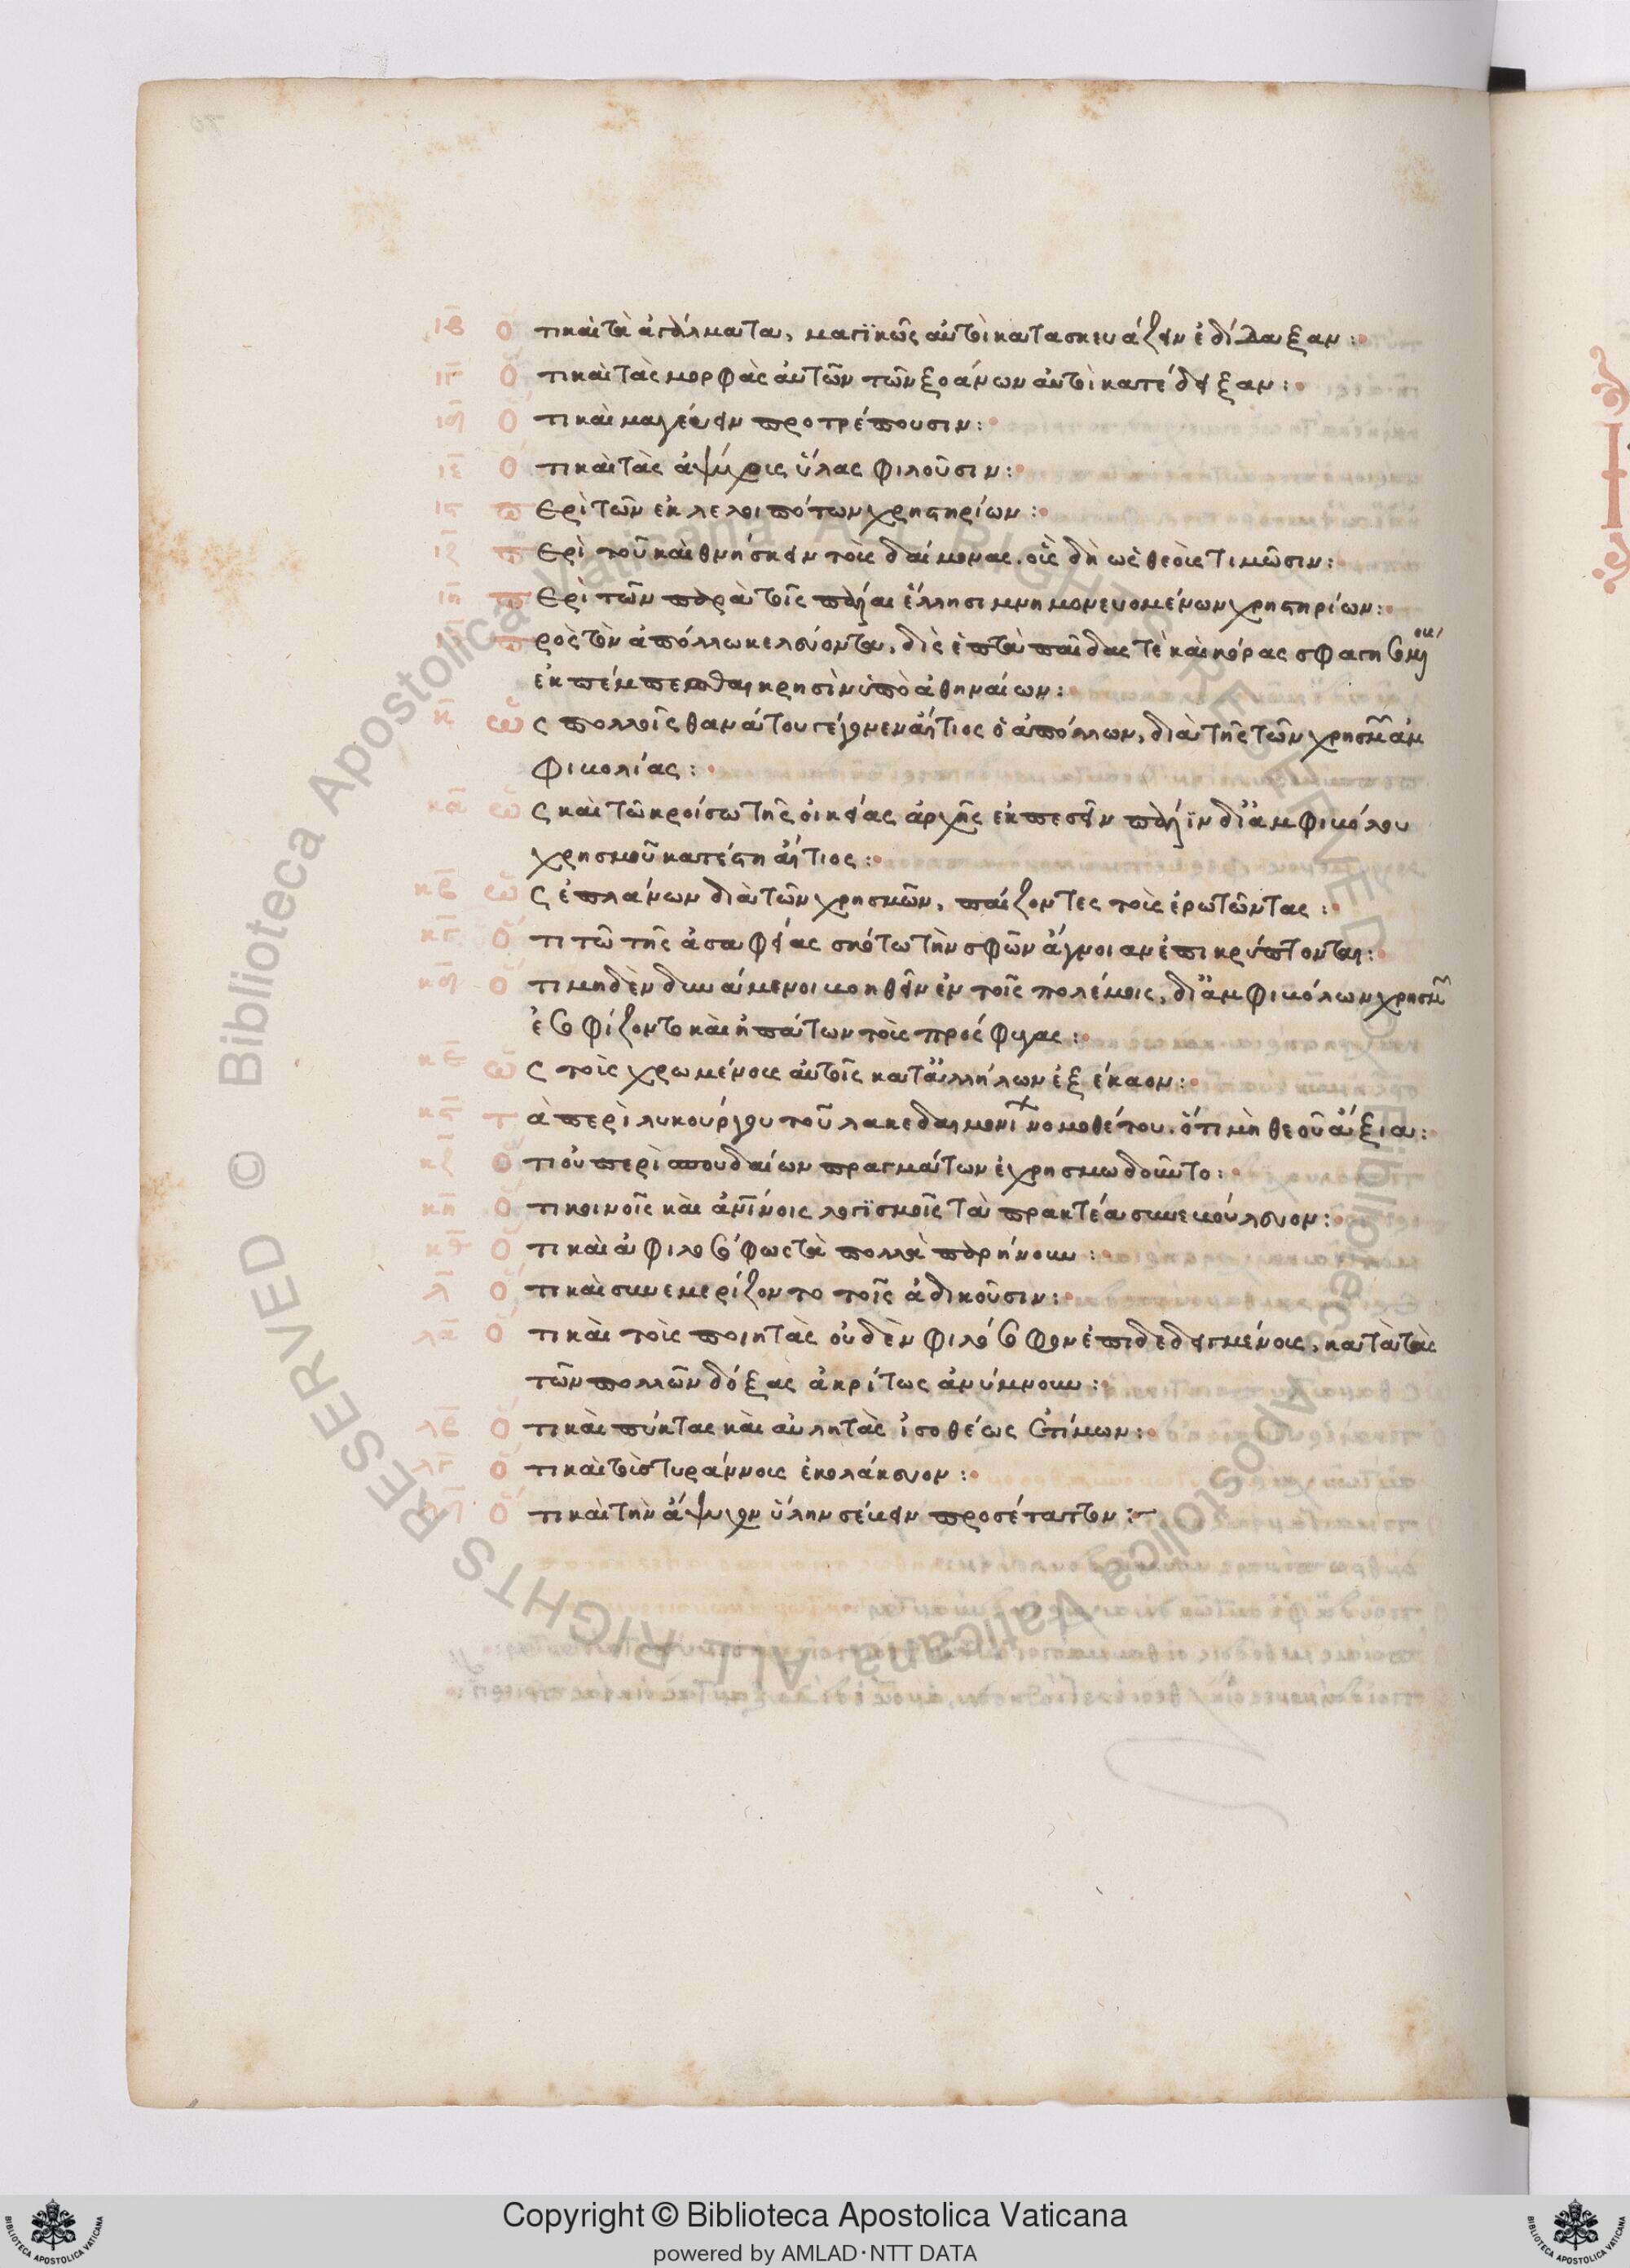 ιβ Ὅτι καὶ τὰ ἀγάλματα, μαγϊκῶς αὐτοὶ κατασκευάζειν ἐδίδαξαν:
ιγ Ὅτι καὶ τὰς μορφὰς αὐτῶν τῶν ξοάνων αὐτοὶ κατέδειξαν:
ιδ Ὅτι καὶ μαγεύειν προτρέπουσιν:
ιε Ὅτι καὶ τὰς ἀψύχοις ὕλας φιλοῦσιν:
ις Περὶ τῶν ἐκλελοιπότων χρηστηρίων:
ιζ Περὶ τοῦ καὶ θνήσκειν τοὺς δαίμονας. οὓς δὴ ὡς θεοὺς τιμῶσιν:
ιη Περὶ τῶν παρὰ τοῖς πάλαι ἕλλησι μνημονευομένων χρηστηρίων:
ιθ Πρὸς τὸν ἀπόλλω κελεύοντα, δὶς ἑπτὰ παῖδας τὲ καὶ κόρας σφαγησομένους
ἐκπέμπεσθαι κρησὶν ὑπὸ ἀθηναίων:
κ Ὡς πολλοῖς θανάτου γέγονεν αἴτιος ὁ ἀπόλλων, διὰ τῆς τῶν χρησμῶν ἀμ
φιβολίας:
κα Ὡς καὶ τῶ κροίσω τῆς οἰκείας ἀρχῆς ἐκπεσεῖν πάλϊν δι' ἀμφιβόλου
χρησμοῦ κατέστη αἴτιος:
κβ Ὡς ἐπλάνων διὰ τῶν χρησμῶν, παίζοντες τοὺς ἐρωτῶντας:
κγ Ὅτι τῶ τῆς ἀσαφείας σκότω τὴν σφῶν ἄγνοιαν ἐπικρύπτονται:
κδ Ὅτι μηδὲν δυνάμενοι βοηθεῖν ἐν τοῖς πολέμοις, δι' ἀμφιβόλων χρησμῶν
ἐσοφίζοντο καὶ ἠπάτων τοὺς πρόσφυγας:
κε Ὡς τοὺς χρωμένους αὐτοῖς κατ' ἀλλήλων ἐξέκαον:
κς Τὰ περὶ λυκούργου τοῦ λακεδαιμονίων νομοθέτου. ὅτι μὴ θεοῦ ἄξια:
κζ Ὅτι οὐ περὶ σπουδαίων πραγμάτων ἐχρησμωδοῦντο:
κη Ὅτι κοινοῖς καὶ ἀνθρωπίνοις λογϊσμοῖς τὰ πρακτέα συνεβούλευον:
κθ Ὅτι καὶ ἀφιλοσόφως τὰ πολλὰ παρήνουν:
λ Ὅτι καὶ συνεμερίζοντο τοῖς ἀδικοῦσιν:
λα Ὅτι καὶ τοὺς ποιητὰς οὐδὲν φιλόσοφον ἐπιδεδειγμένους, κατὰ τὰς
τῶν πολλῶν δόξας ἀκρίτως ἀνύμνουν:
λβ Ὅτι καὶ πύκτας καὶ αὐλητὰς ἰσοθέως ἐτίμων:
λγ Ὅτι καὶ τοὺς τυράννους ἐκολάκευον:
λδ Ὅτι καὶ τὴν ἄψυχον ὕλην σέβειν προσέταττον:
Copyright © Biblioteca Apostolica Vaticana
powered by AMLAD·NTT DATA